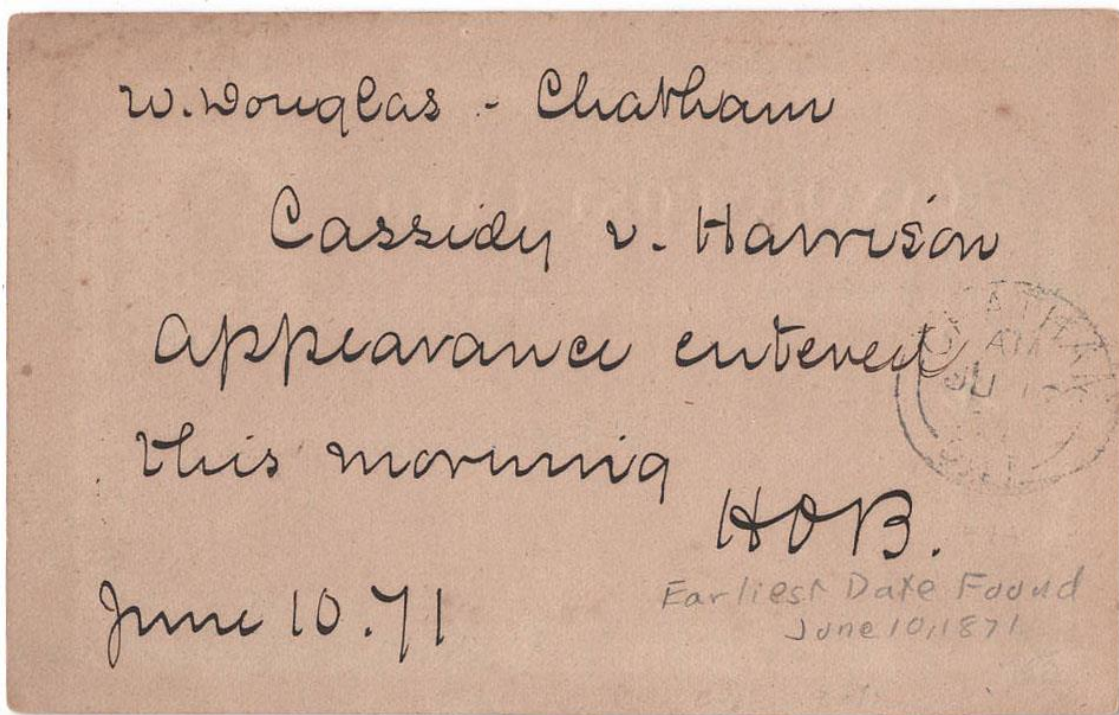 W. Douglas - Chatham
Cassidy v. Harrison
appearance entered
this morning
HOB.
June 10. 71
Earliest Date Found
June 10, 1871